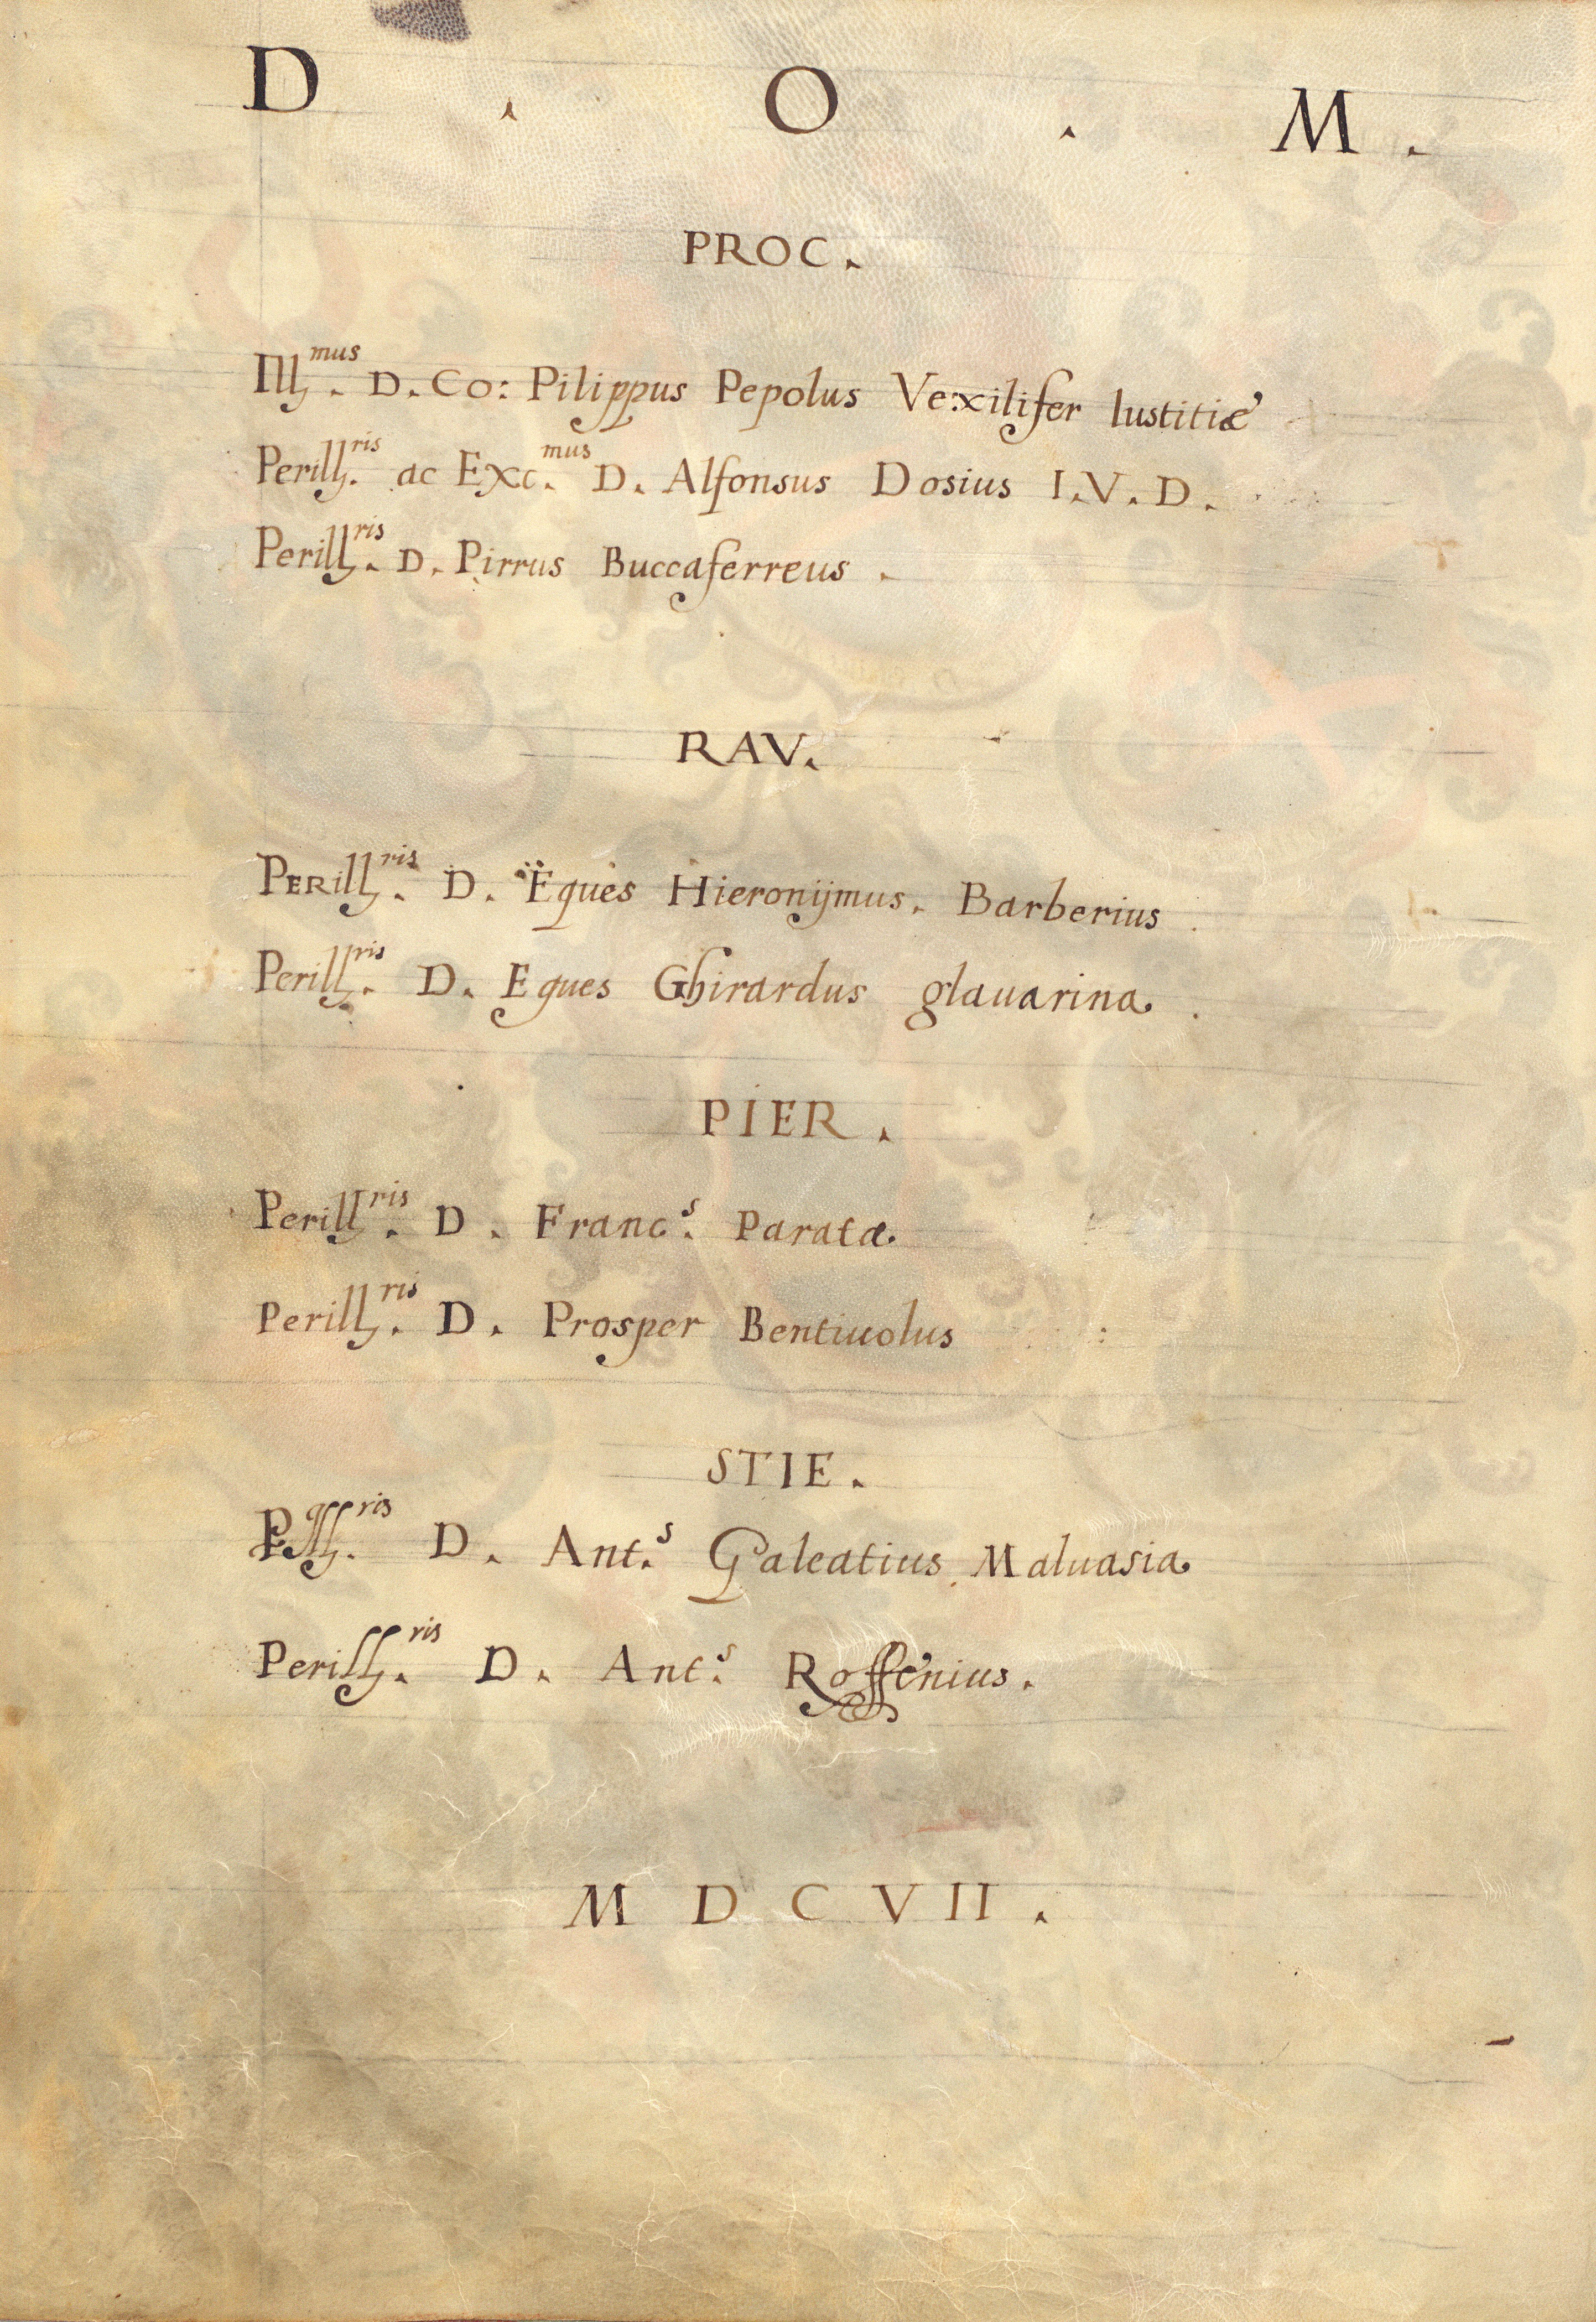 D . O . M .
PROC.
Ill.mus D. Co: Pilippus Pepolus Vexilifer Iustitiæ
Perill.ris ac Exc.mus D. Alfonsus Dosius I.V.D.
Perill.ris D. Pirrus Buccaferreus .
RAV.
PERill.ris D. Eques Hieronÿmus. Barberius .
Perill.ris D. Eques Ghirardus glauarina .
PIER .
Perill.ris D . Franc.s Parata.
Perill.ris D . Prosper Bentiuolus :
STIE .
D . Ant.s Galeatius Maluasia
Perill.ris D . Ant.s Roffenius .
M D C VII .